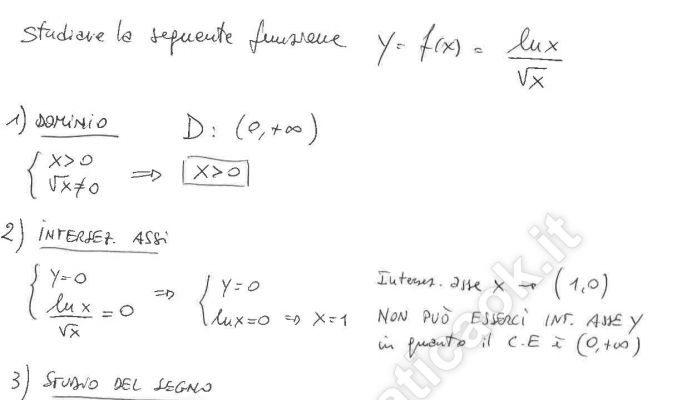 Studiare la seguente funzione y = f(x) = lnx / √x
1) DOMINIO D: (0,+∞)
{ x>0
√x≠0 ⇒ x>0
2) INTERSEZ. ASSI
{ y=0
lnx/√x = 0 ⇒ { y=0
lnx=0 ⇒ x=1
Intersez. asse x → (1,0)
NON PUÒ ESSERCI INT. ASSE Y
in quanto il C.E è (0,+∞)
3) STUDIO DEL SEGNO
aticaok.it